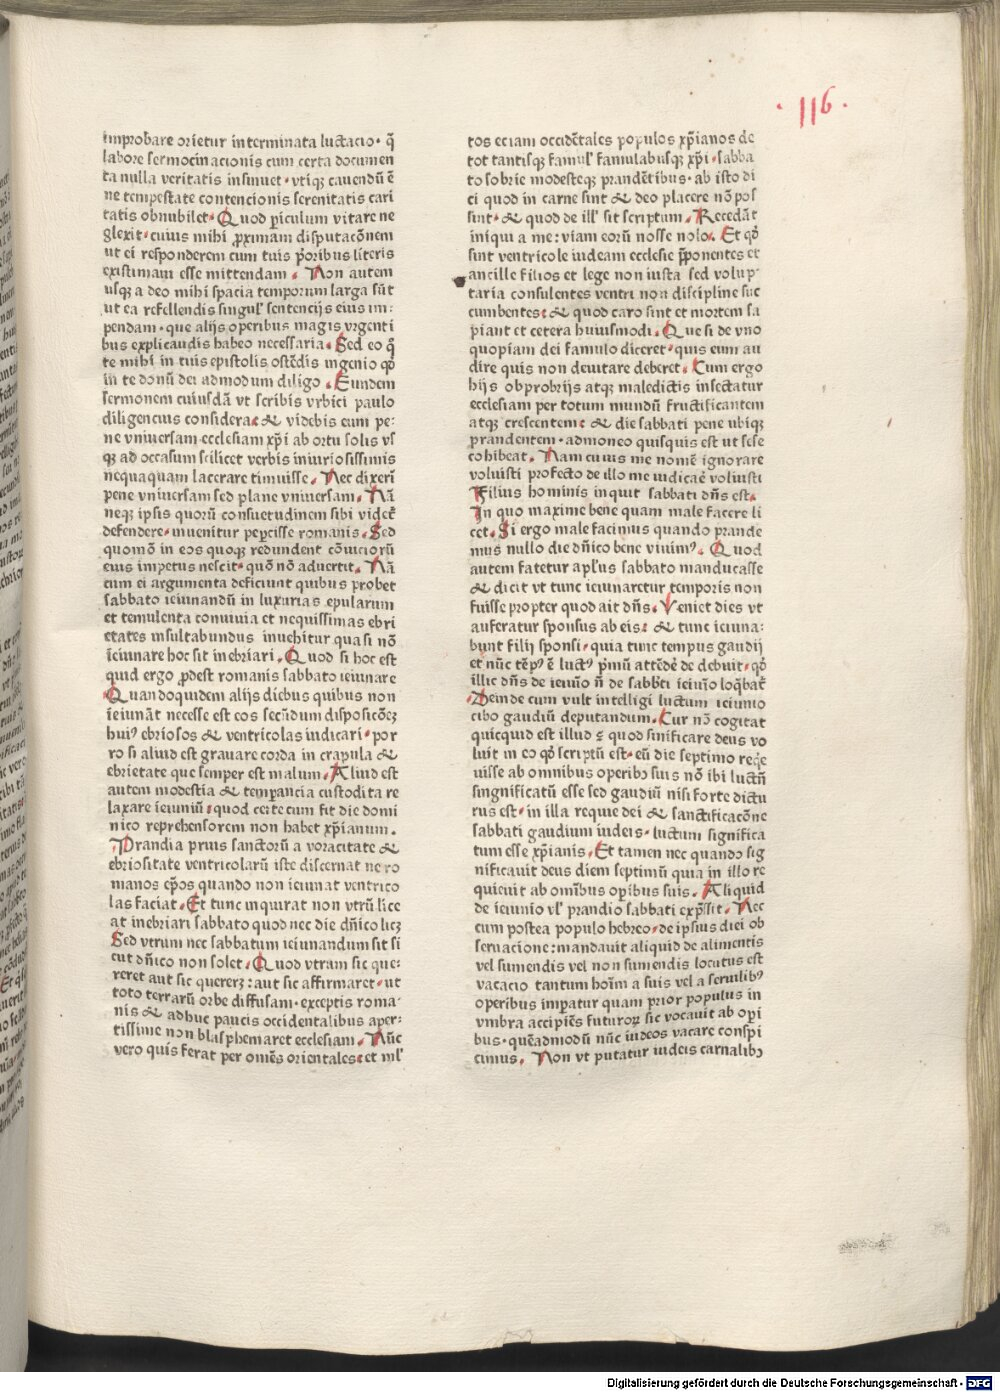 · 116 ·
improbare orietur interminata luctacio· q̃
labore sermocinacionis cum certa documen
ta nulla veritatis insinuet· vtiqȝ cauendũ ẽ
ne tempestate contencionis serenitatis cari
tatis obnubilet· Quod p̱iculum vitare ne
glexit· cuius mihi ꝓximam disputacõnem
ut ei responderem cum tuis p̃oribus literis
existimaui esse mittendam. Non autem
usqȝ a deo mihi spacia temporum larga sũt
ut ea refellendis singul' sentencijs eius im:
pendam· que alijs operibus magis vrgenti
bus explicandis habeo necessaria. Sed eo q̃
te mihi in tuis epistolis ostẽdis ingenio qđ
in te donũ dei admodum diligo. Eundem
sermonem cuiusdã vt scribis vrbici paulo
diligencius considera: & videbis eum pe:
ne vniuersam ecclesiam xp̃i ab ortu solis vs
qȝ ad occasum scilicet verbis iniuriosissimis
nequaquam lacerare timuisse. Nec dixerĩ
pene vniuersam sed plane vniuersam. Nã
neqȝ ipsis quorũ consuetudinem sibi videt̃
defendere· inuenitur pep̱cisse romanis. Sed
quomõ in eos quoqȝ redundent cõuiciorũ
eius impetus nescit· quõ nõ aduertit. Nã
cum ei argumenta deficiunt quibus probet
sabbato ieiunandũ in luxurias epularum
et temulenta conuiuia et nequissimas ebri
etates insultabundus inuehitur quasi nõ
ieiunare hoc sit inebriari. Quod si hoc est
quid ergo ꝓdest romanis sabbato ieiunare
Quandoquidem alijs diebus quibus non
ieiunãt necesse est eos secũdum disposicõeȝ
huiꝰ ebriosos & ventricolas iudicari· por
ro si aliud est grauare corda in crapula &
ebrietate que semper est malum. Aliud est
autem modestia & temp̱ancia custodita re
laxare ieiuniũ: quod certe cum fit die domi
nico reprehensorem non habet xp̃ianum.
Prandia prius sanctorũ a voracitate &
ebriositate ventricolarũ iste discernat ne ro
manos ep̃os quando non ieiunat ventrico
las faciat. Et tunc inquirat non vtrũ lice
at inebriari sabbato quod nec die dñico licȝ
Sed vtrum nec sabbatum ieiunandum sit si
cut dñico non solet. Quod vtram sic que:
reret aut sic quererȝ: aut sic affirmaret· ut
toto terrarũ orbe diffusam· exceptis roma·
nis & adhuc paucis occidentalibus aper·
tissime non blasphemaret ecclesiam. Nũc
vero quis ferat per omẽs orientales: et ml'
tos eciam occidẽtales populos xp̃ianos de
tot tantisqȝ famul' famulabusqȝ xp̃i· sabba
to sobrie modesteqȝ prandẽtibus· ab isto di
ci quod in carne sint & deo placere nõ pos
sint· & quod de ill' sit scriptum. Recedãt
iniqui a me: viam eorũ nosse nolo. Et qđ
sint ventricole iudeam ecclesie p̃ponentes et
ancille filios et lege non iusta sed volup·
taria consulentes ventri non discipline suc
cumbentes: & quod caro sint et mortem sa
piant et cetera huiusmodi. Que si de vno
quopiam dei famulo diceret· quis eum au
dire quis non deuitare deberet. Cum ergo
hijs obprobrijs atqȝ maledictis insectatur
ecclesiam per totum mundũ fructificantem
atqȝ crescentem: & die sabbati pene ubiqȝ
prandentem· admoneo quisquis est ut sese
cohibeat. Nam cuius me nomẽ ignorare
voluisti profecto de illo me iudicaẽ voluisti
Filius hominis inquit sabbati dñs est.
In quo maxime bene quam male facere li
cet. Si ergo male facimus quando prande
mus nullo die dñico bene viuimꝰ. Quod
autem fatetur apl'us sabbato manducasse
& dicit vt tunc ieiunaretur temporis non
fuisse propter quod ait dñs. Veniet dies vt
auferatur sponsus ab eis: & tunc ieiuna:
bunt filij sponsi· quia tunc tempus gaudij
et nũc tẽpꝰ ẽ luctꝰ p̃mũ attẽde̾ de debuit· qđ
illic dñs de ieiu̾io ñ de sabb̃ti ieiu̾io loq̃bat̃
Deinde cum vult intelligi luctum ieiunio
cibo gaudiũ deputandum. Cur nõ cogitat
quicquid est illud ꝑ quod sinificare deus vo
luit in eo qđ scriptũ est· eũ die septimo req̃e
uisse ab omnibus operibȝ suis nõ ibi luctũ
singnificatũ esse sed gaudiũ nisi forte dictu
rus est· in illa requie dei & sanctificacõne
sabbati gaudium iudeis· luctum significa
tum esse xp̃ianis. Et tamen nec quando sig
nificauit deus diem septimũ quia in illo re
quieuit ab omĩbus op̱ibus suis. Aliquid
de ieiunio vl' prandio sabbati exp̃ssit. Nec
cum postea populo hebreo· de ipsius diei ob
seruacione: mandauit aliquid de alimentis
vel sumendis vel non sumendis locutus est
vacacio tantum hoĩm a suis vel a seruilibȝ
operibus imp̱atur quam prior populus in
vmbra accipiẽs futuroꝝ sic vocauit ab op̱i
bus· quẽadmodũ nũc iudeos vacare conspi
cimus. Non vt putatur iudeis carnalibȝ
Digitalisierung gefördert durch die Deutsche Forschungsgemeinschaft - DFG